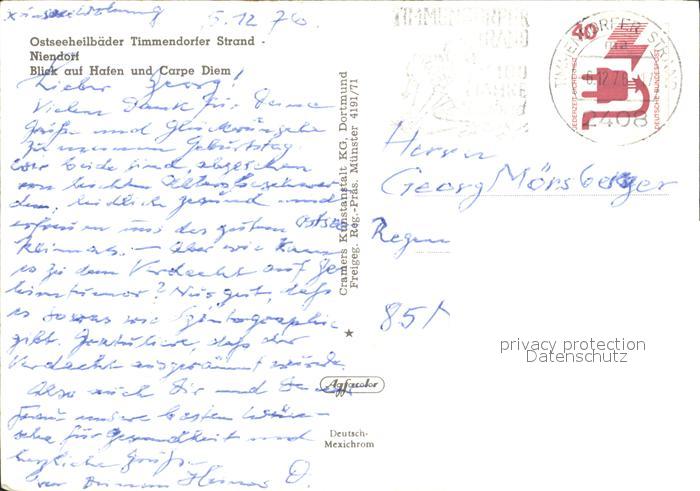 5.12.76
Ostseeheilbäder Timmendorfer Strand -
Niendorf
Blick auf Hafen und Carpe Diem
Lieber Georg!
Vielen Dank für Deine
Grüße und Glückwünsche
zu meinem Geburtstag.
Wir beide sind, abgesehen
von leichten
leidlich gesund und
erfreuen uns des guten Ostsee
klimas. - Aber wie kam
es zu dem Verdacht auf Ge-
hirntumor? Nur gut, daß
es so was wie Szintographie
gibt. Gratuliere, daß der
Verdacht ausgeräumt wurde.
Also auch Dir und Deiner
Frau unsere besten Wün-
sche für Gesundheit und
herzliche Grüße
Cramers Kunstanstalt KG, Dortmund
Freigeg. Reg.-Präs. Münster 4191/71
Agfacolor
Deutsch-
Mexichrom
TIMMENDORFER
STRAND
JAHRE
TIMMENDORFER STRAND
2408
40
JEDERZEIT SICHERHEIT
DEUTSCHE BUNDESPOST
Herrn
Georg Mörsberger
Regen
851
privacy protection
Datenschutz